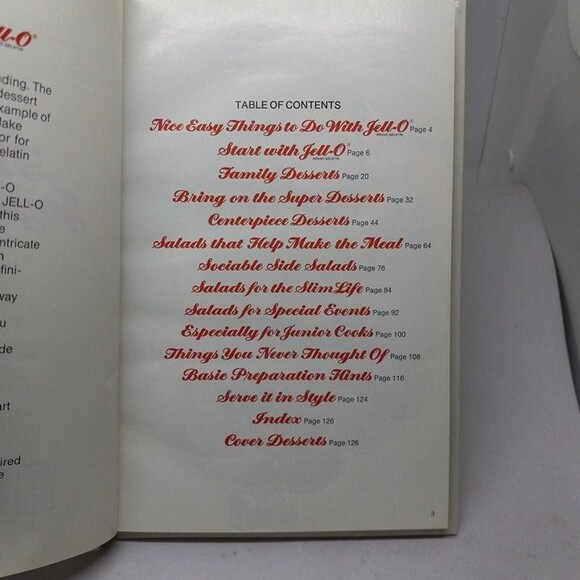 ll-O®
ding. The
dessert
xample of
Make
or for
elatin
-O
JELL-O
this
e
ntricate
n
fini-
way
u
de
art
ired
e
TABLE OF CONTENTS
Nice Easy Things to Do With Jell-O® BRAND GELATIN Page 4
Start with Jell-O® BRAND GELATIN Page 6
Family Desserts Page 20
Bring on the Super Desserts Page 32
Centerpiece Desserts Page 44
Salads that Help Make the Meal Page 64
Sociable Side Salads Page 76
Salads for the Slim Life Page 84
Salads for Special Events Page 92
Especially for Junior Cooks Page 100
Things You Never Thought Of Page 108
Basic Preparation Hints Page 116
Serve it in Style Page 124
Index Page 126
Cover Desserts Page 126
3